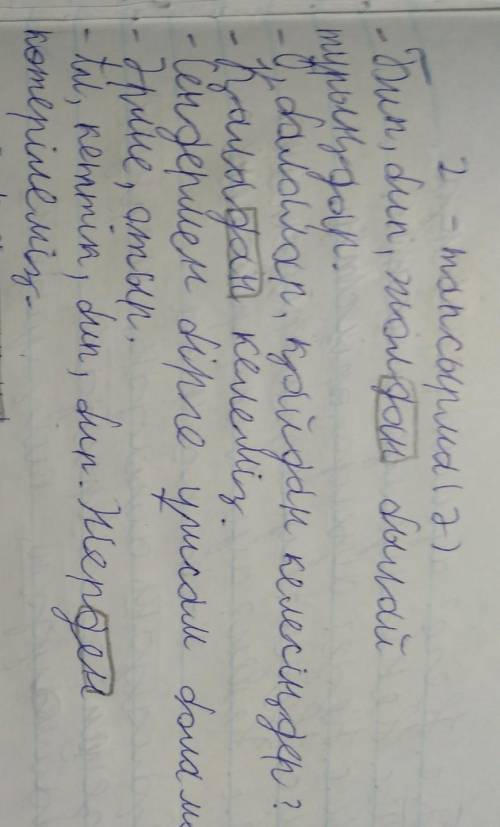 2 - тапсырма (2)
- Бип, бип, жолдан былай
тұрыңдар.
- О, балалар, қайдан келесіңдер?
- Қаладан келеміз.
- Сендермен бірге ұшсам болама
- Әрине, отыр.
- Ал, кеттік, бип, бип. Жерден
көтерілеміз.